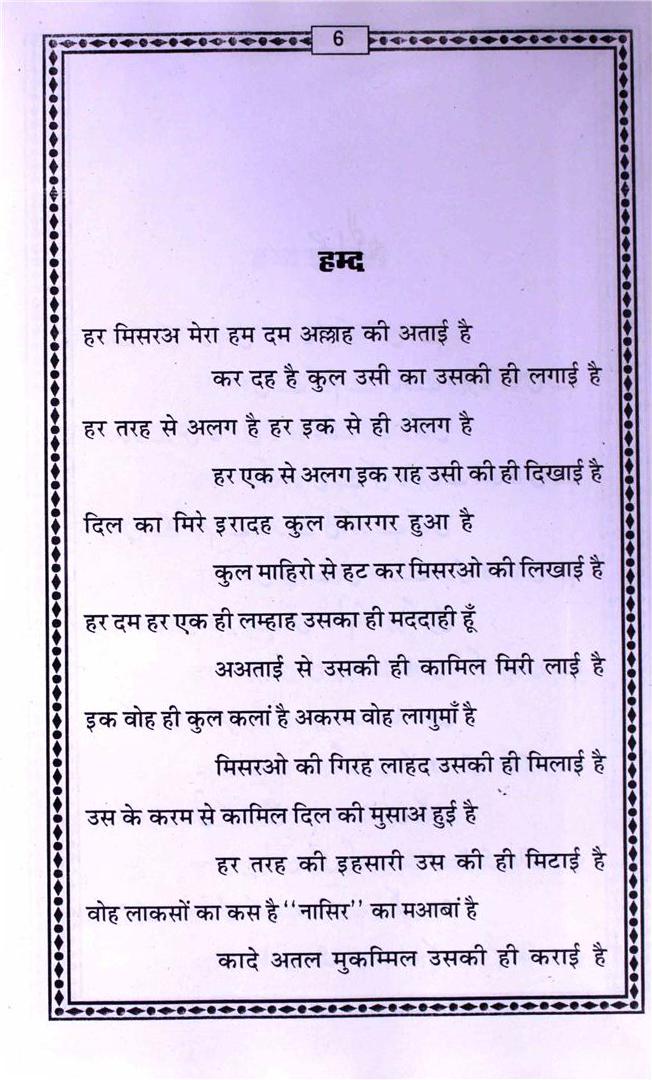 6
हम्द
हर मिसरअ मेरा हम दम अल्लाह की अताई है
कर दह है कुल उसी का उसकी ही लगाई है
हर तरह से अलग है हर इक से ही अलग है
हर एक से अलग इक राह उसी की ही दिखाई है
दिल का मिरे इरादह कुल कारगर हुआ है
कुल माहिरो से हट कर मिसरओ की लिखाई है
हर दम हर एक ही लम्हाह उसका ही मददाही हूँ
अअताई से उसकी ही कामिल मिरी लाई है
इक वोह ही कुल कलां है अकरम वोह लागुमाँ है
मिसरओ की गिरह लाहद उसकी ही मिलाई है
उस के करम से कामिल दिल की मुसाअ हुई है
हर तरह की इहसारी उस की ही मिटाई है
वोह लाकसों का कस है ‘‘नासिर’’ का मआबां है
कादे अतल मुकम्मिल उसकी ही कराई है